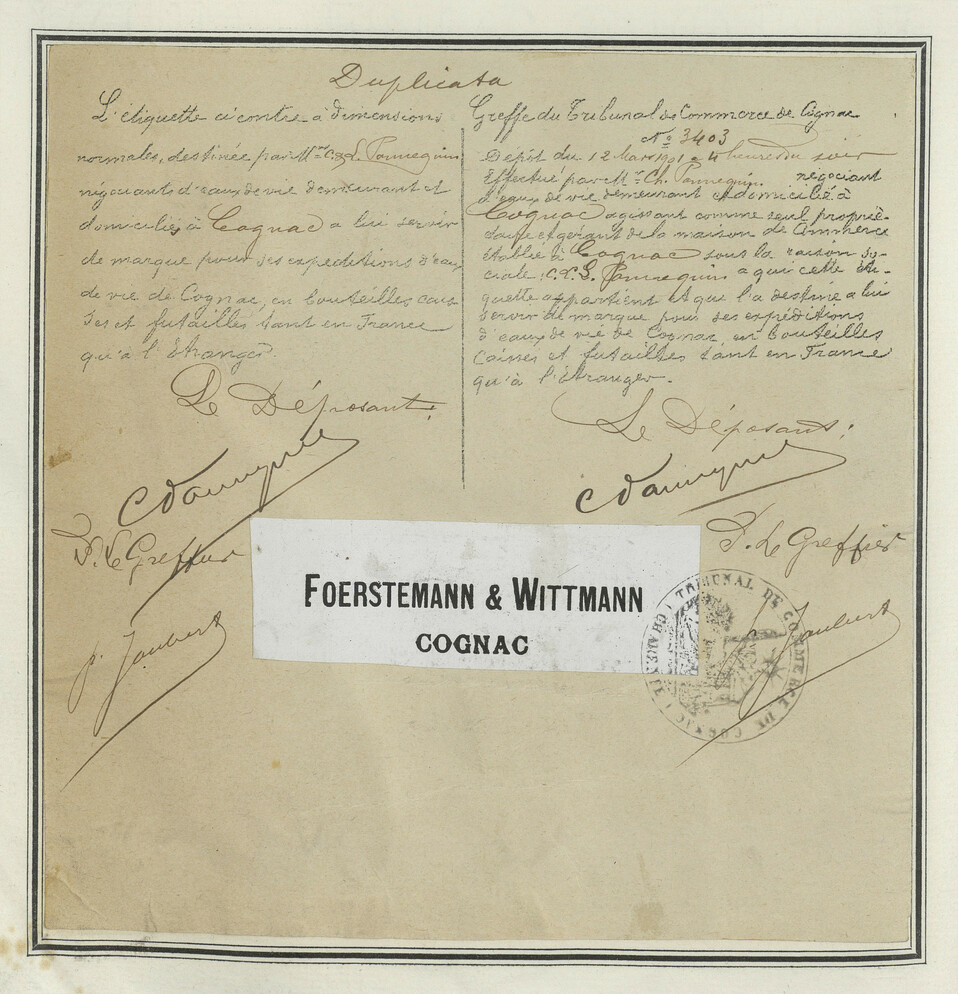 Duplicata
L'étiquette ci contre à dimensions
normales, destinée par Mr C. & L. Pannequin
négociants d'eaux de vie demeurant et
domiciliés à Cognac a lui servir
de marque pour ses expéditions d'eaux
de vie de Cognac, en bouteilles cais-
ses et futailles tant en France
qu'à l'Étranger.
Le Déposant:
P. Le Greffier
p. Joubert
Greffe du Tribunal de Commerce de Cognac
No 3403
Dépôt du 12 Mars 1901 à 4 heures du soir
Effectué par Mr Ch. Pannequin négociant
d'eaux de vie demeurant et domicilié à
Cognac agissant comme seul proprié-
taire et gérant de la maison de Commerce
établie à Cognac sous la raison so-
ciale: C. & L. Pannequin a qui cette éti-
quette appartient et que l'a destiné a lui
servir de marque pour ses expéditions
d'eaux de vie de Cognac, en bouteilles
Caisses et futailles tant en France
qu'à l'Étranger.
Le Déposant:
P. Le Greffier
Joubert
FOERSTEMANN & WITTMANN
COGNAC
TRIBUNAL DE COMMERCE DE COGNAC (CHARENTE)